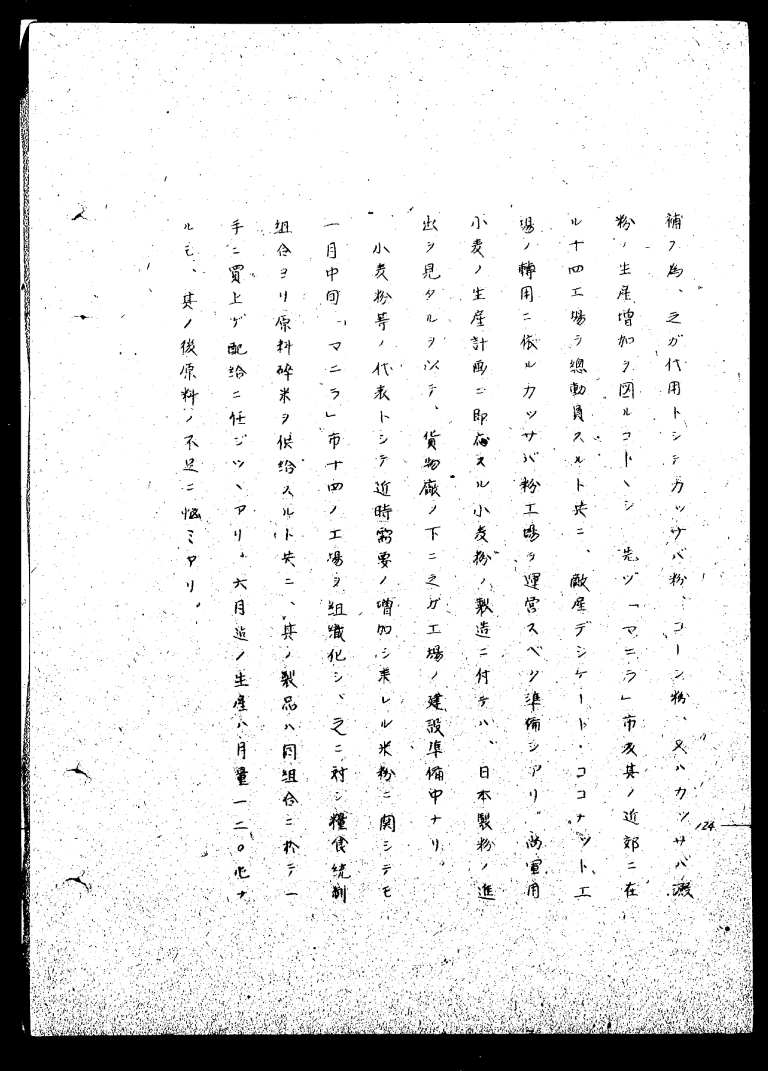 補フ為、之ガ代用トシテカッサバ粉、コーン粉、又ハカッサバ澱
粉ノ生産増加ヲ図ルコトヽシ先ヅ「マニラ」市及其ノ近郊ニ在
ル十四工場ヲ總動員スルト共ニ、敵産デシケート・ココナット工
場ノ轉用ニ依ルカッサバ粉工場ヲ運営スベク準備シアリ。尚軍用
小麦ノ生産計画ニ即応スル小麦粉ノ製造ニ付テハ、日本製粉ノ進
出ヲ見タルヲ以テ、貨物廠ノ下ニ之ガ工場ノ建設準備中ナリ。
小麦粉等ノ代表トシテ近時需要ノ増加シ来レル米粉ニ関シテモ
一月中旬「マニラ」市十四ノ工場ヲ組織化シ、之ニ対シ糧食統制
組合ヨリ原料砕米ヲ供給スルト共ニ、其ノ製品ハ同組合ニ於テ一
手ニ買上ゲ配給ニ任ジツヽアリ。六月迄ノ生産ハ月量一二〇屯ナ
ルモ、其ノ後原料ノ不足ニ悩ミアリ。
124